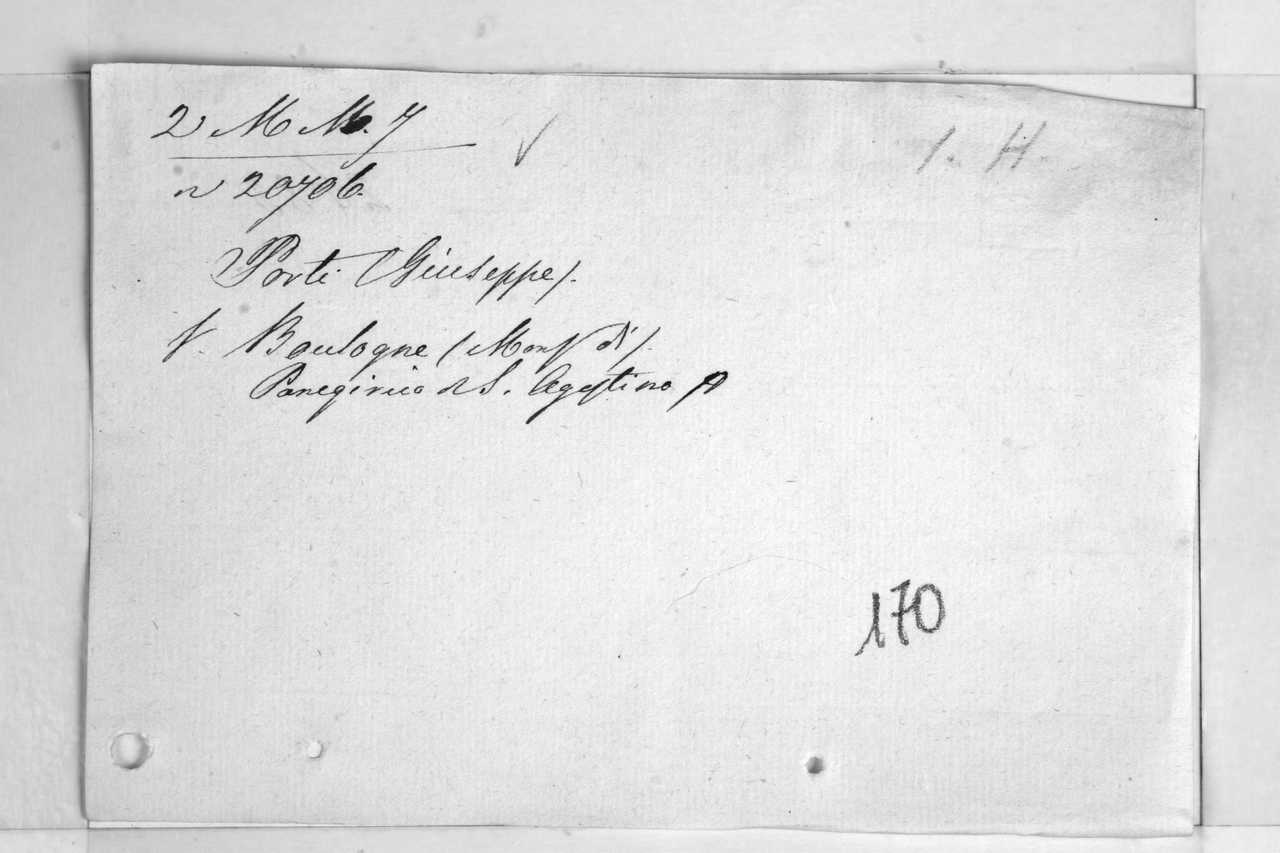 2 M M. 7 √ 1. H.
n 20706.
Porti (Giuseppe).
V. Boulogne (Monsr di).
Panegirico di S. Agostino
170